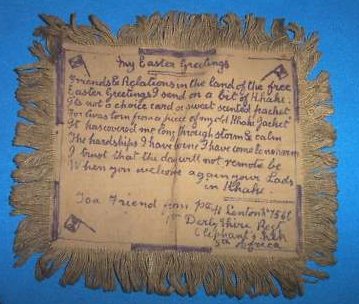 My Easter Greetings
Friends & Relations in the land of the free
Easter Greetings I send on a bit of Khake.
Its not a choice card or sweet scented packet
For twas torn from a piece of my old Khake Jacket
It has covered me long through storm & calm
The hardships I have borne I have come to no harm
I trust that the day will not remote be
When you welcome again your Lads
in Khake
To a Friend from Pte H Renton
Derbyshire Regt
Elephants
Sth Africa